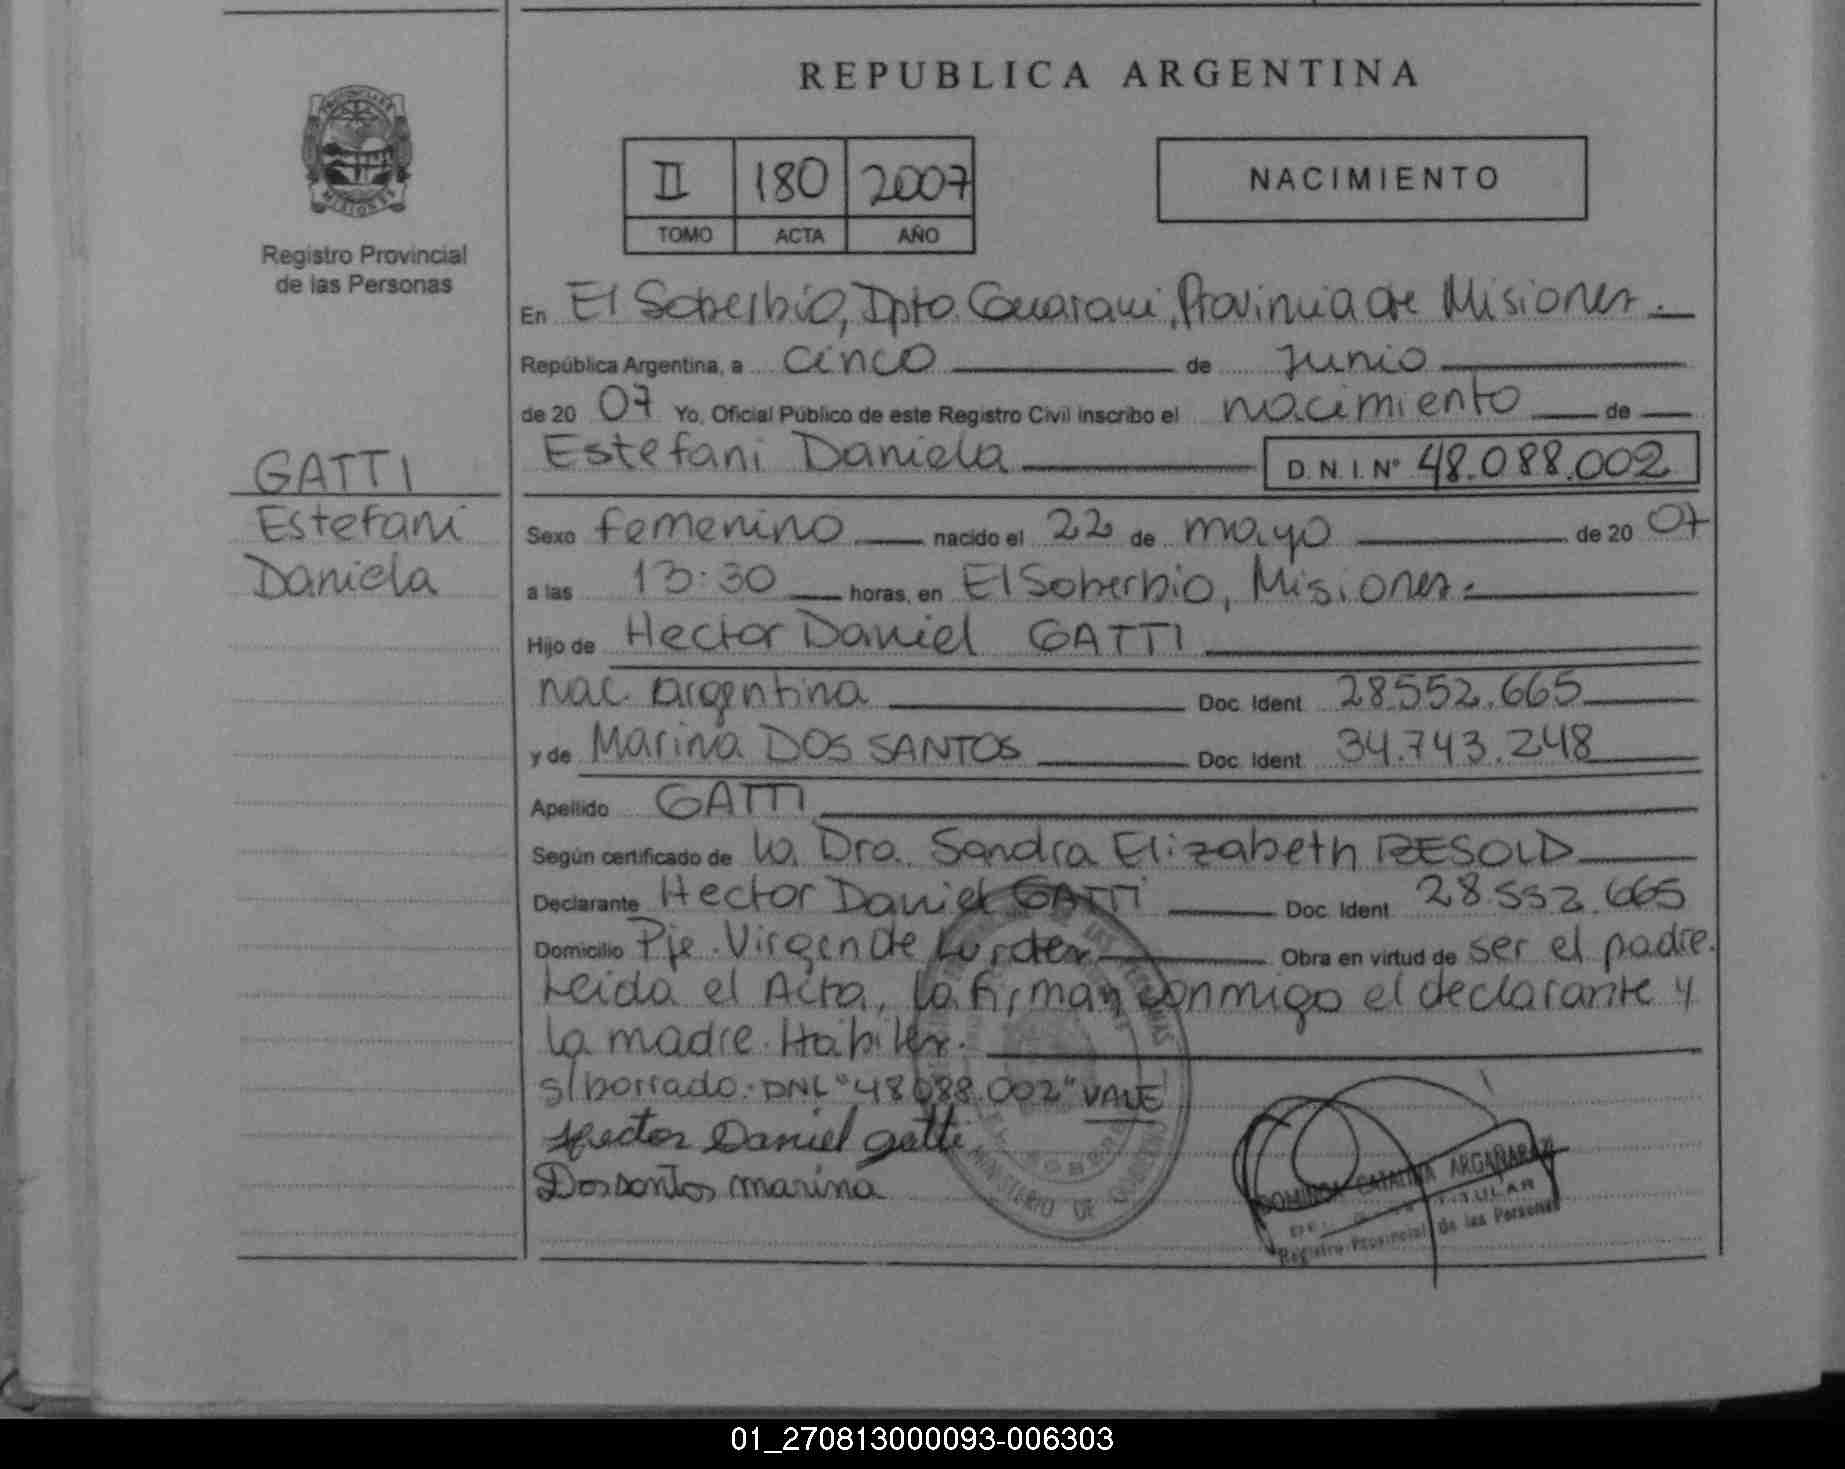 REPUBLICA ARGENTINA
PROVINCIA DE
MISIONES
Registro Provincial
de las Personas
II 180 2007
TOMO ACTA AÑO
NACIMIENTO
En El Soberbio, Dpto. Guarani, Provincia de Misiones.
República Argentina, a cinco de Junio
de 20 07 Yo, Oficial Público de este Registro Civil inscribo el nacimiento de
Estefani Daniela D.N.I. Nº 48.088.002
GATTI
Estefani
Daniela
Sexo femenino nacido el 22 de mayo de 20 07
a las 13:30 horas, en El Soberbio, Misiones.
Hijo de Hector Daniel GATTI
nac. argentina Doc. Ident. 28.552.665
y de Marina DOS SANTOS Doc. Ident. 34.743.248
Apellido GATTI
Según certificado de la Dra. Sandra Elizabeth RESOLD
Declarante Hector Daniel GATTI Doc. Ident. 28.552.665
Domicilio Pje. Virgen de Lurdes Obra en virtud de ser el padre.
Leida el Acta, la firman conmigo el declarante y
la madre. Habiles.
s/borrado: DNI. "48.088.002" VALE
Hector Daniel gatti
Dossantos marina
MINISTERIO DE GOBIERNO
CATALINA ARGAÑARAZ
TITULAR
Registro Provincial de las Personas
01_270813000093-006303